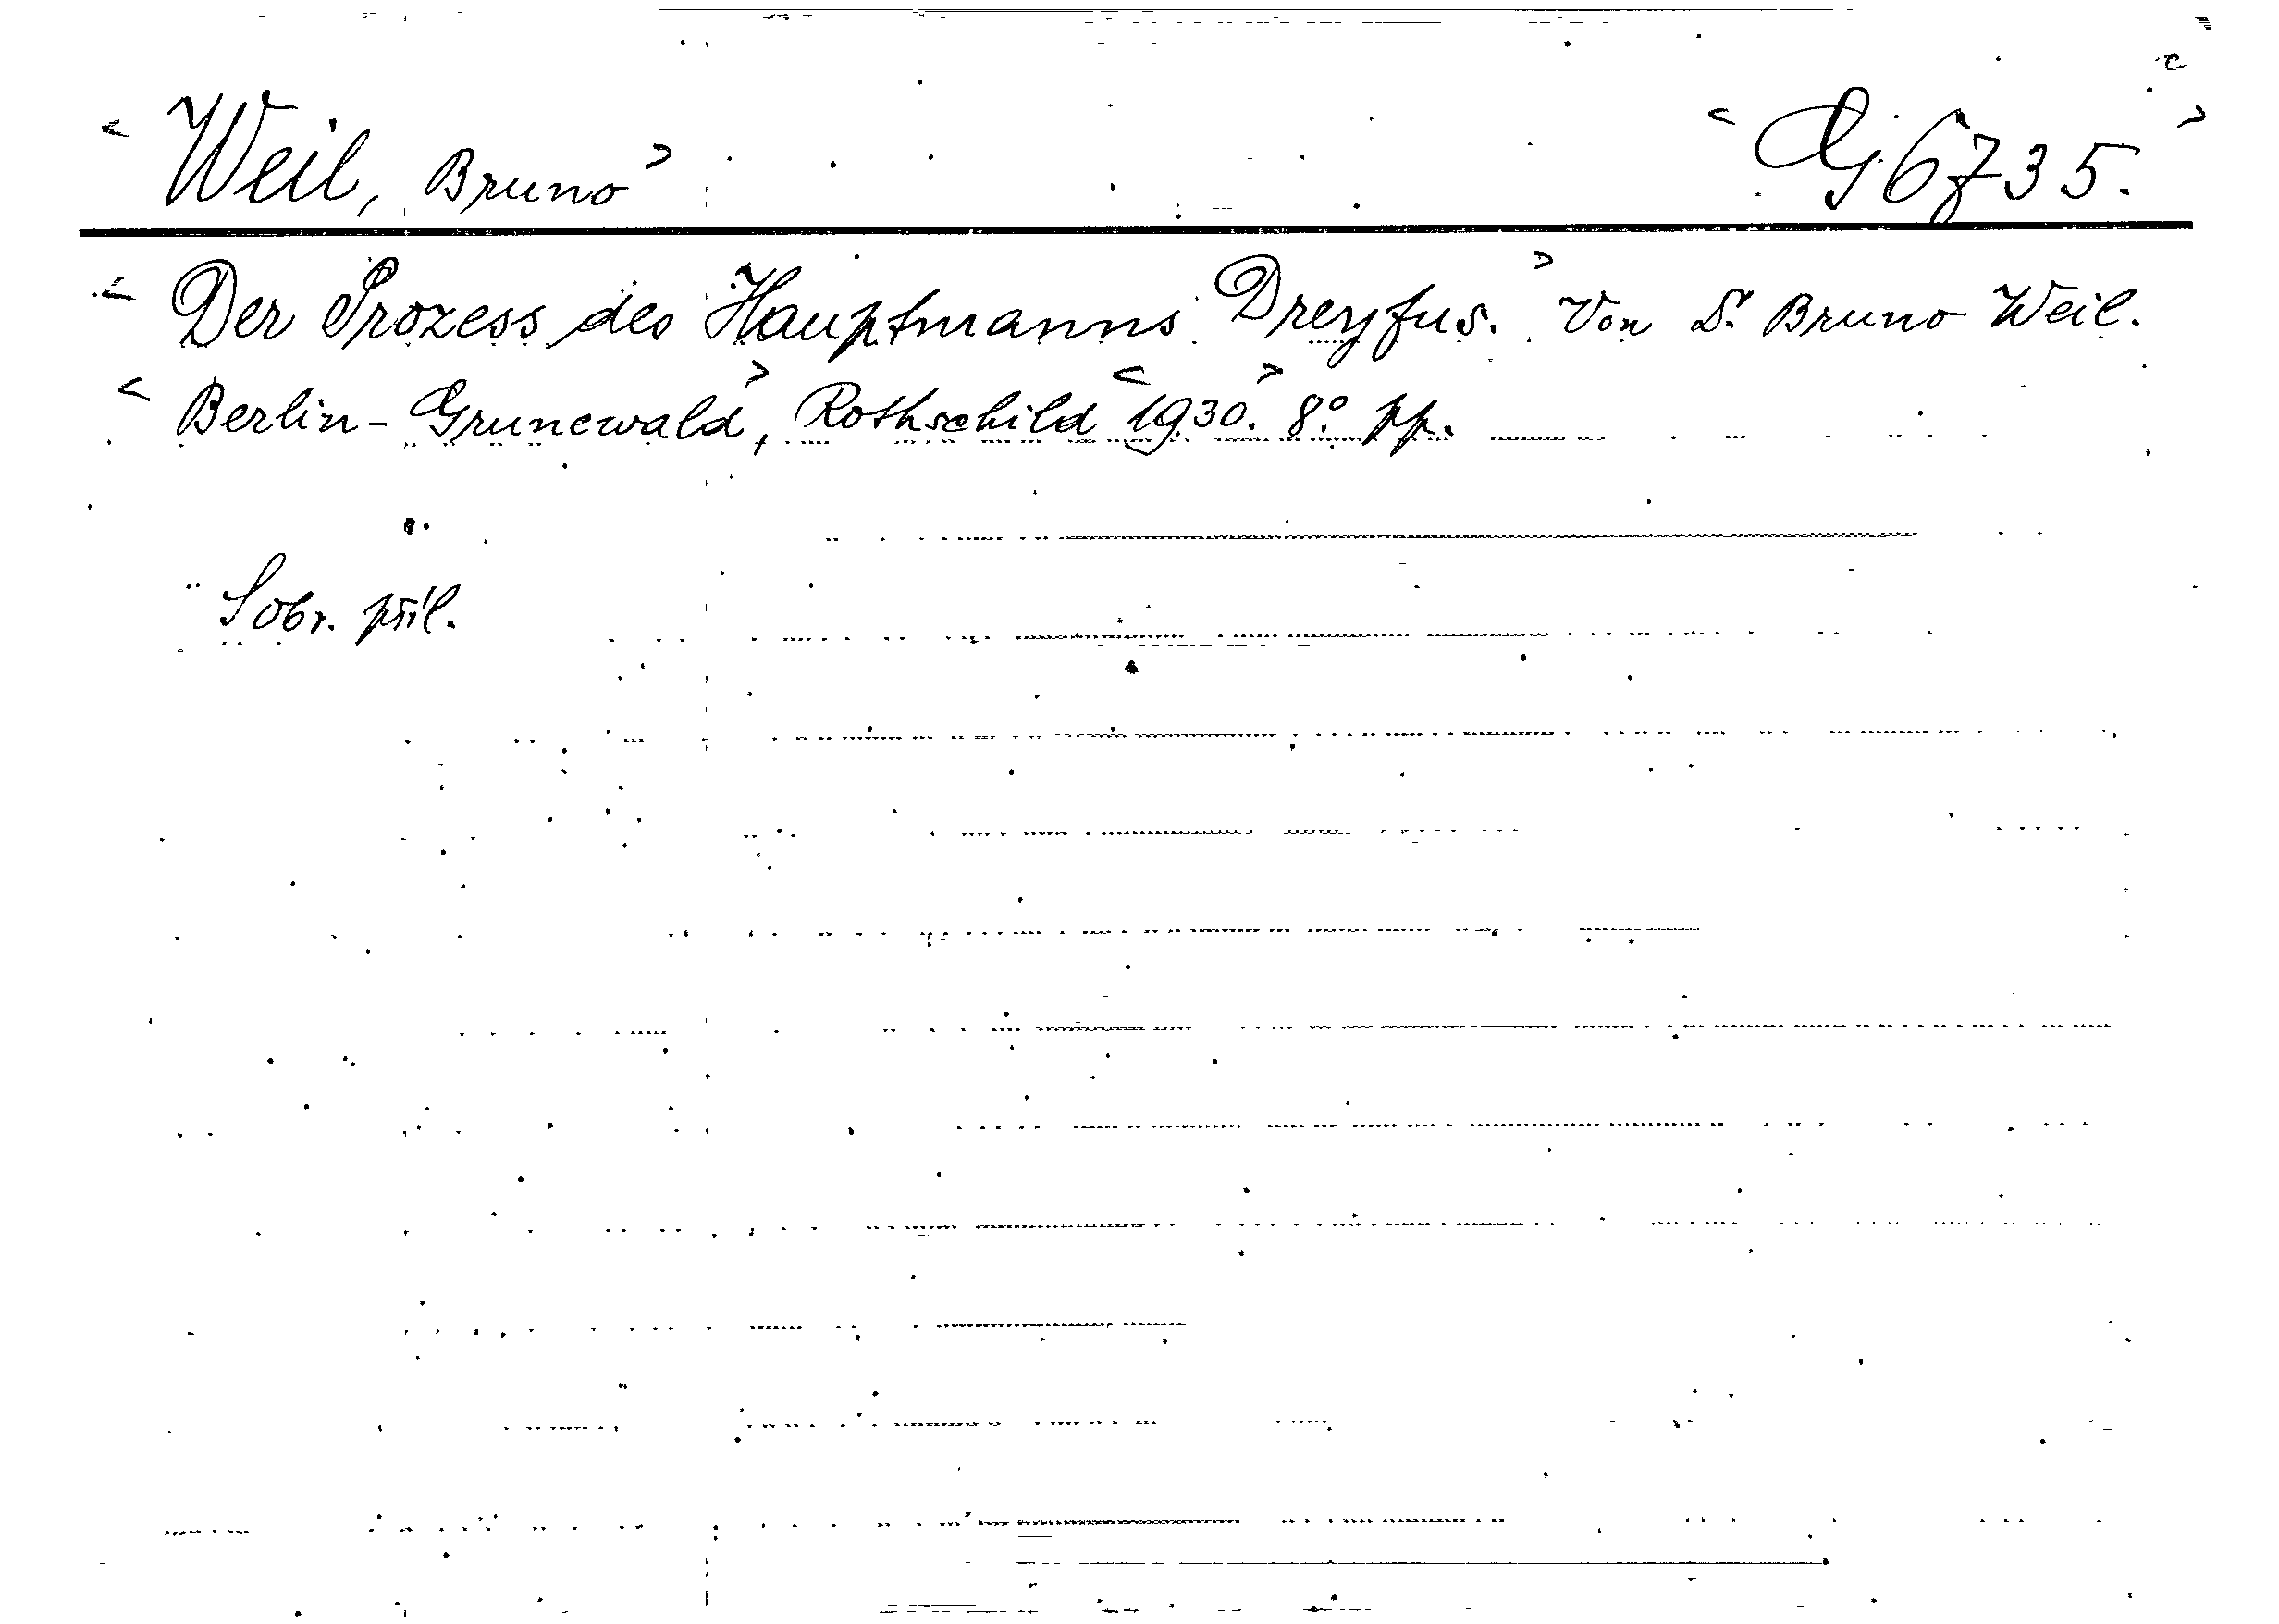 < Weil, Bruno > < Gj 6735. >
< Der Prozess des Hauptmanns Dreyfus. > Von Dr. Bruno Weil.
< Berlin-Grunewald >, Rothschild < 1930. > 8° pp.
Sobr. příl.